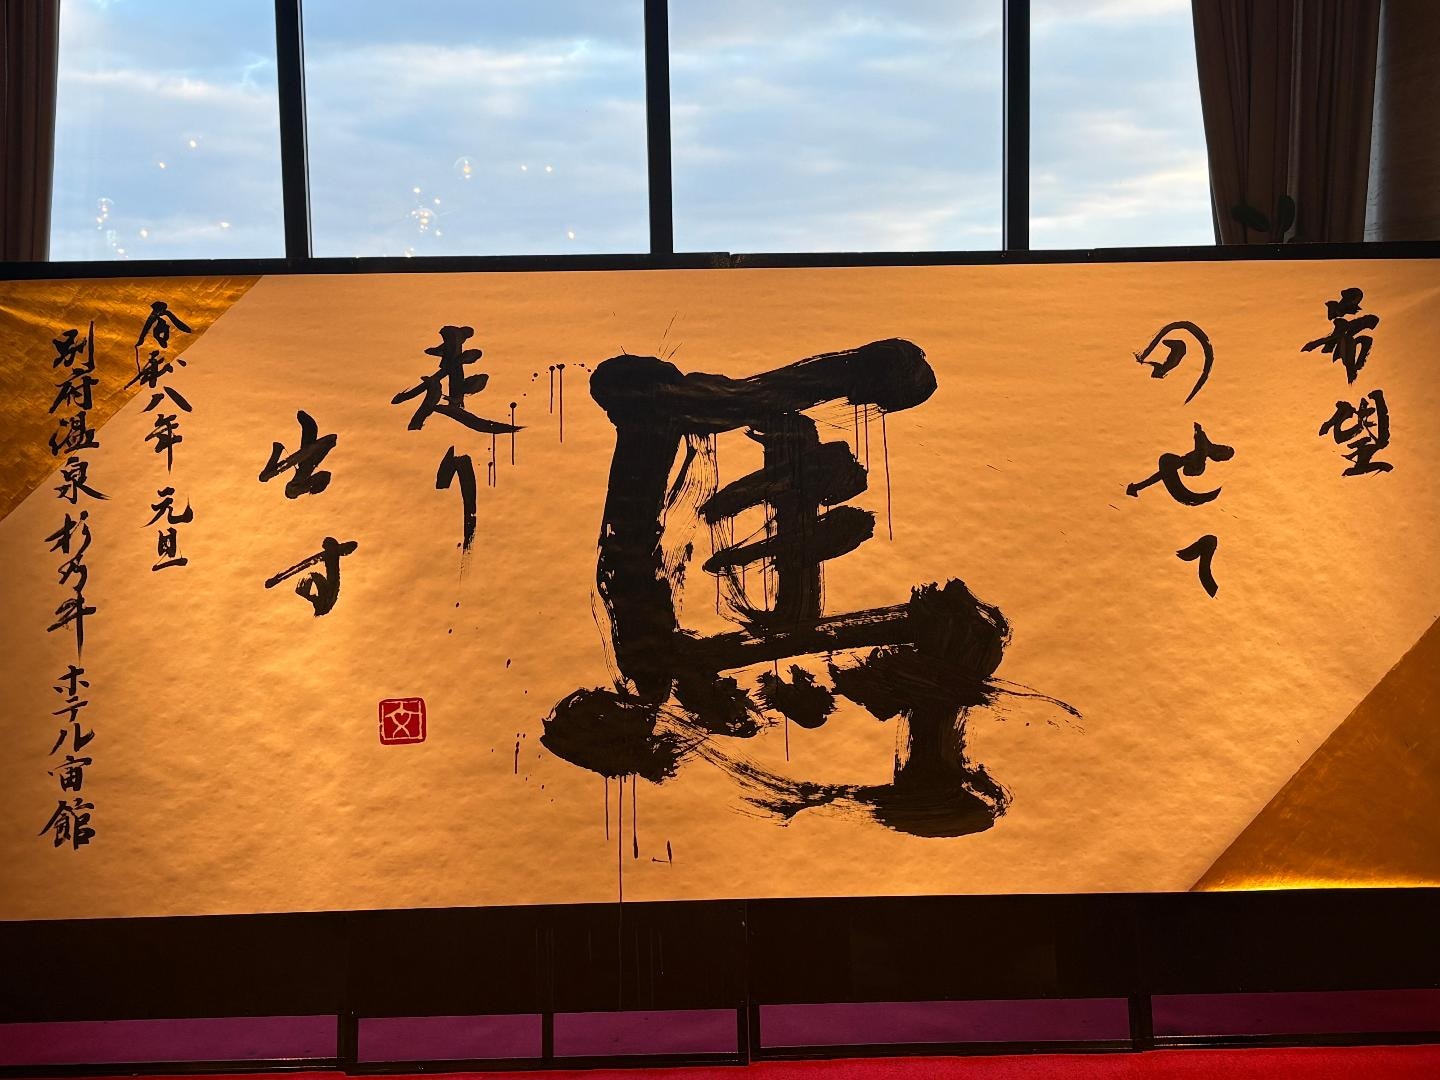 希望
のせて
馬
走り
出す
文
令和八年 元旦
別府温泉 杉乃井ホテル宙館